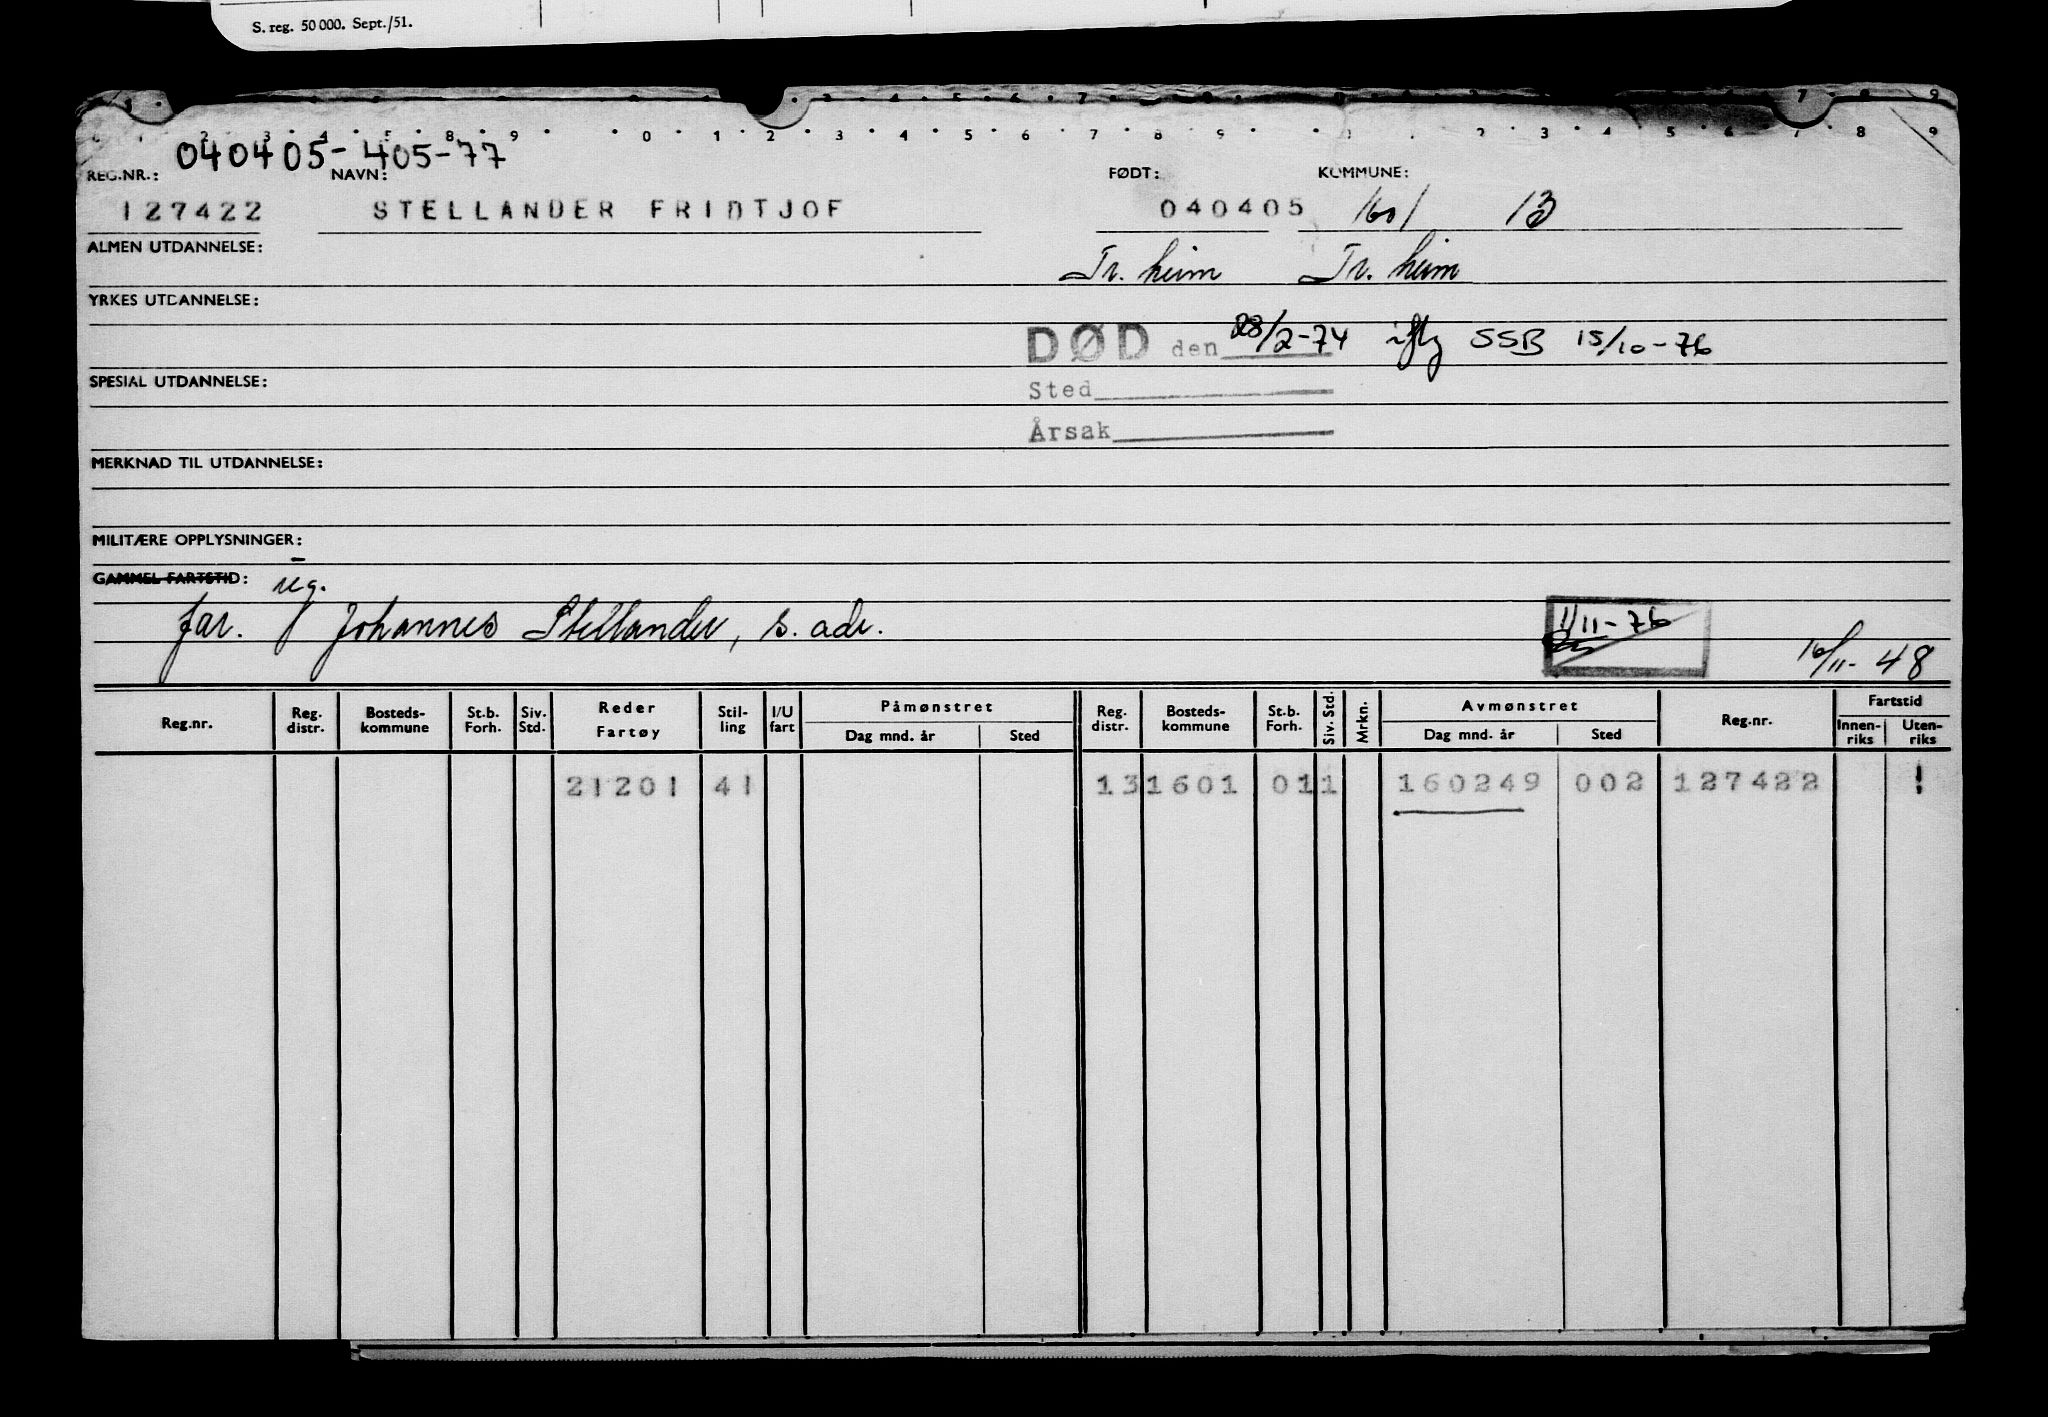 S. reg. 50 000. Sept./51.
040405-405-77
REG.NR.: NAVN: FØDT: KOMMUNE:
127422 STELLANDER FRIDTJOF 040405 1601 13
ALMEN UTDANNELSE: Tr. heim Tr. heim
YRKES UTDANNELSE:
DØD den 28/2-74 iflg SSB 15/10-76
SPESIAL UTDANNELSE: Sted
Årsak
MERKNAD TIL UTDANNELSE:
MILITÆRE OPPLYSNINGER:
GAMMEL FARTSTID: reg.
far. Johannes Stellander, s. adr. 1/11-76
16/11-48
Reg.nr. Reg. distr. Bosteds-kommune St.b. Forh. Siv. Std. Reder Fartøy Stil-ling I/U fart Påmønstret Dag mnd. år Sted Reg. distr. Bosteds-kommune St.b. Forh. Siv. Std. Mrkn. Avmønstret Dag mnd. år Sted Reg.nr. Fartstid Innen-riks Uten-riks
21201 41 13 1601 01 1 160249 002 127422